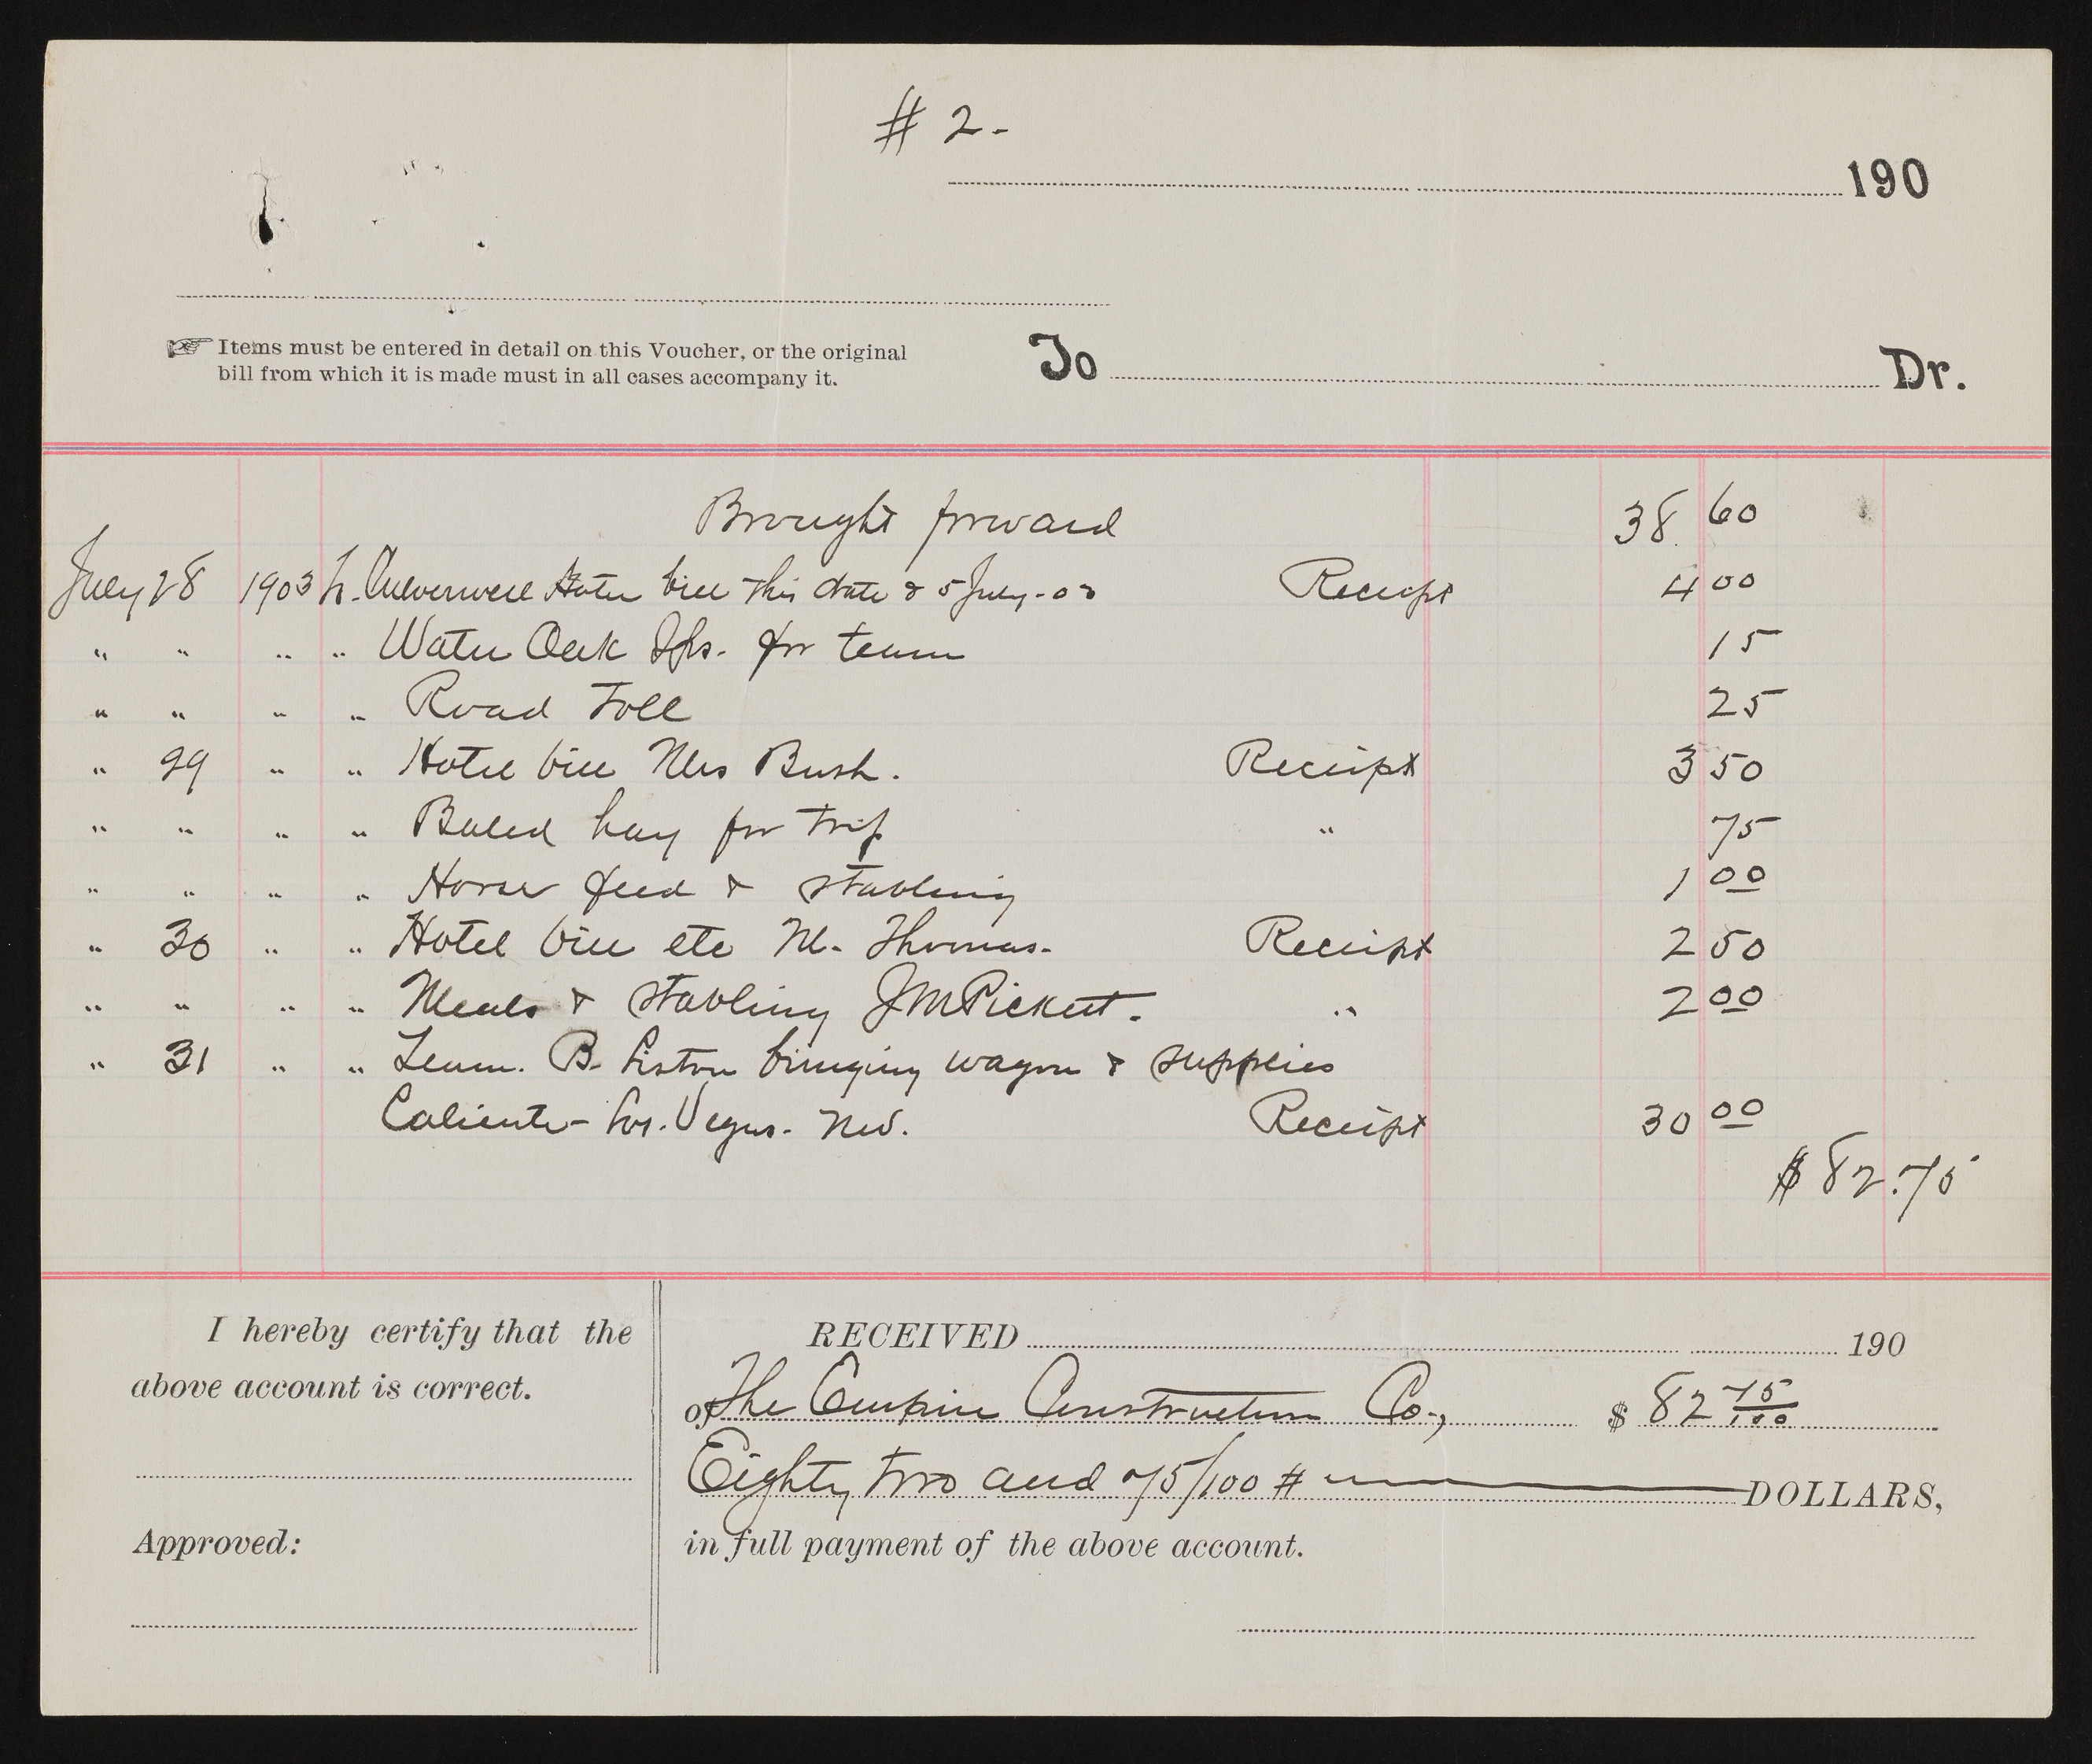 # 2-
190
Items must be entered in detail on this Voucher, or the original
bill from which it is made must in all cases accompany it.
To Dr.
Brought forward 38 60
July 28 1903 Culverwell Hotel bill this date & 5 July-03 Receipt 4 00
" " " " Water Oak Spgs. for team 15
" " " " Road Toll 25
" 29 " " Hotel bill Mrs Bush. Receipt 3 50
" " " " Baled hay for trip " 75
" " " " Horse feed & stabling 1 00
" 30 " " Hotel bill etc M. Thomas. Receipt 2 50
" " " " Meals & stabling J M Pickett. " 2 00
" 31 " " Team. B. Liston bringing wagon & supplies
Caliente - Las. Vegas. Nev. Receipt 30 00
$ 82.75
I hereby certify that the
above account is correct.
Approved:
RECEIVED 190
of The Empire Construction Co., $ 82 75/100
Eighty two and 75/100 # DOLLARS,
in full payment of the above account.